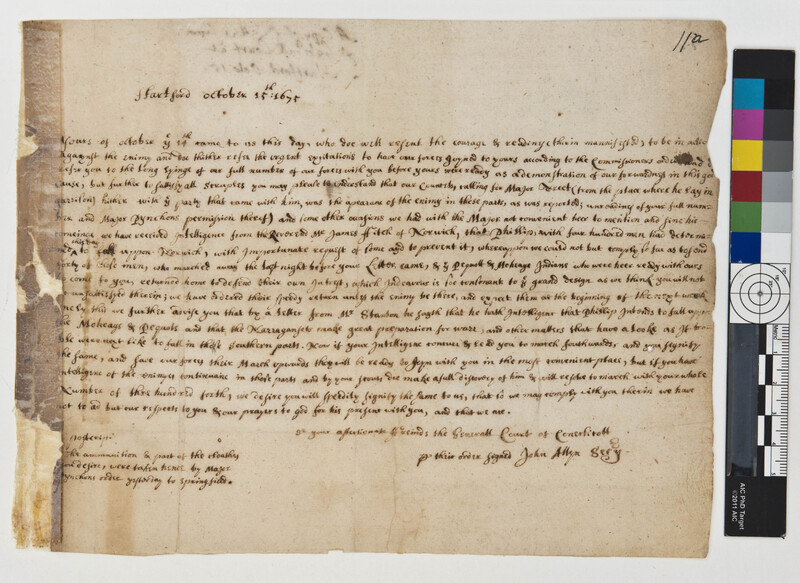 1122
Hartford october 15th: 1675
Yours of october ye 14th came to us this day, who doe well resent the courage & readinesse therin manifested, to be in action
against the enemy and doe thither refer the urgent to have our forces joyned to yours according to the Commissioners order and
refer you to the long lyings of our full number of our forces with you before yours were ready as a demonstration of our forwardness in this great
cause; but further to sattisfy all scruples you may please to understand that our Councils calling for Major Treat (from the place where he lay in
garrison) hither with ye party that came with him, was the apearance of the enimy in these parts, as was reported; unreadines of your full num-
ber and Major Pynchons permission thereof) and some other occasions we had with the Major not convenient heer to mention and since his
comeing we have received Intelligence from the Revorend Mr James Fitch of Norwich, that Phillip; with four hundred men had determin-
ed to fall upon Norwich, with Importunate request of some aid to prevent it; whereuppon we could not but comply so far as to send
party of men, who marched away the last night before your Letter came, & ye Pequott & Moheage Indians who were heer ready with ours
to come to you, returned home to defend their own Intrest, which Indeavour is soe to ye grand design as we think you will not
be unsattisfyed therein; we have ordered their speedy return unless the enemy be there, and expect them at the beginning of the next week
only this we further advise you that by a letter from Mr Stanton he sayth that he hath Intelligence that Phillip Intends to fall uppon
the Moheags & Pequots and that the Narragansets make great preparation for warr, and other matters that have a looke as If tro-
ble were next like to fall in those southern parts. Now if your Intelligence concur & lead you to march southwards, and you signify
the same, and save our forces their March upwards they will be ready to Joyn with you in the most convenient place, but if you have
Intelligence of the enimyes continuance in those parts and by your scouts doe make a full discovery of him & will resolve to march with your whole
Number of three hundred forth, we desire you will speedily signify the same to us, that so we may comply with you therin we have
not to ad but our respects to you & our prayers to god for his present with you, and that we are.
your affectionate freinds the Generall Court of Conecticott
pr their order signed John Allyn Secry
postscript
The ammunition & part of the cloathes
you desire, were taken by Major
Pynchons order yesterday to Springfield.
AIC PhD Target
©2011 AIC